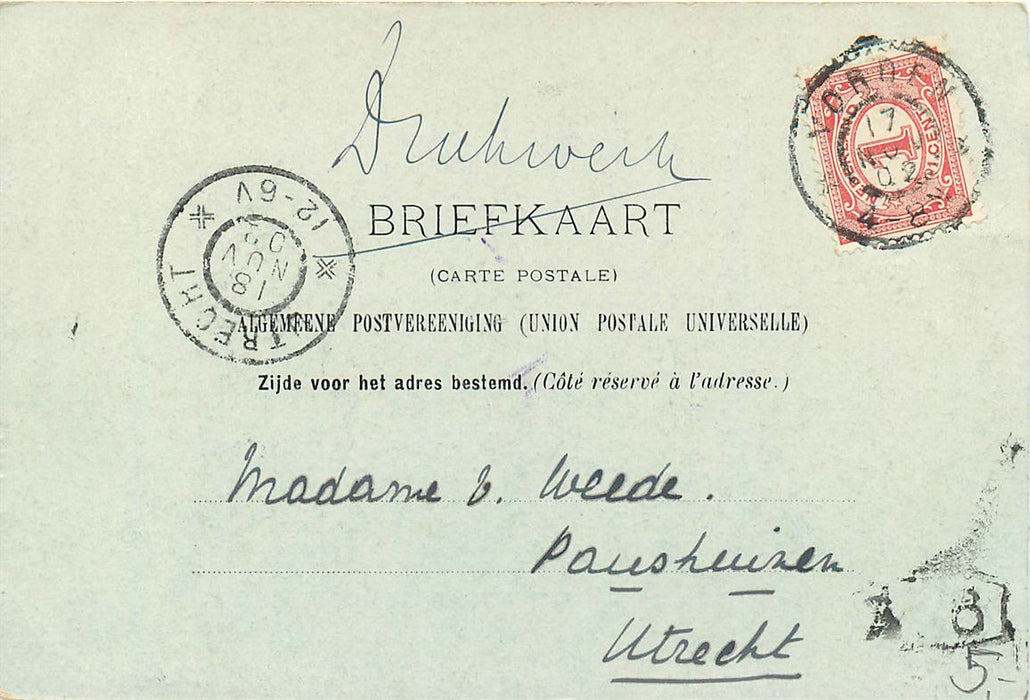 Drukwerk
BRIEFKAART
(CARTE POSTALE)
ALGEMEENE POSTVEREENIGING (UNION POSTALE UNIVERSELLE)
Zijde voor het adres bestemd. (Côté réservé à l'adresse.)
Madame v. Weede.
Paushuizen
Utrecht
VORDEN
17
NOV
02
1
CENT
UTRECHT
18
NOV
02
12-6V
8
5